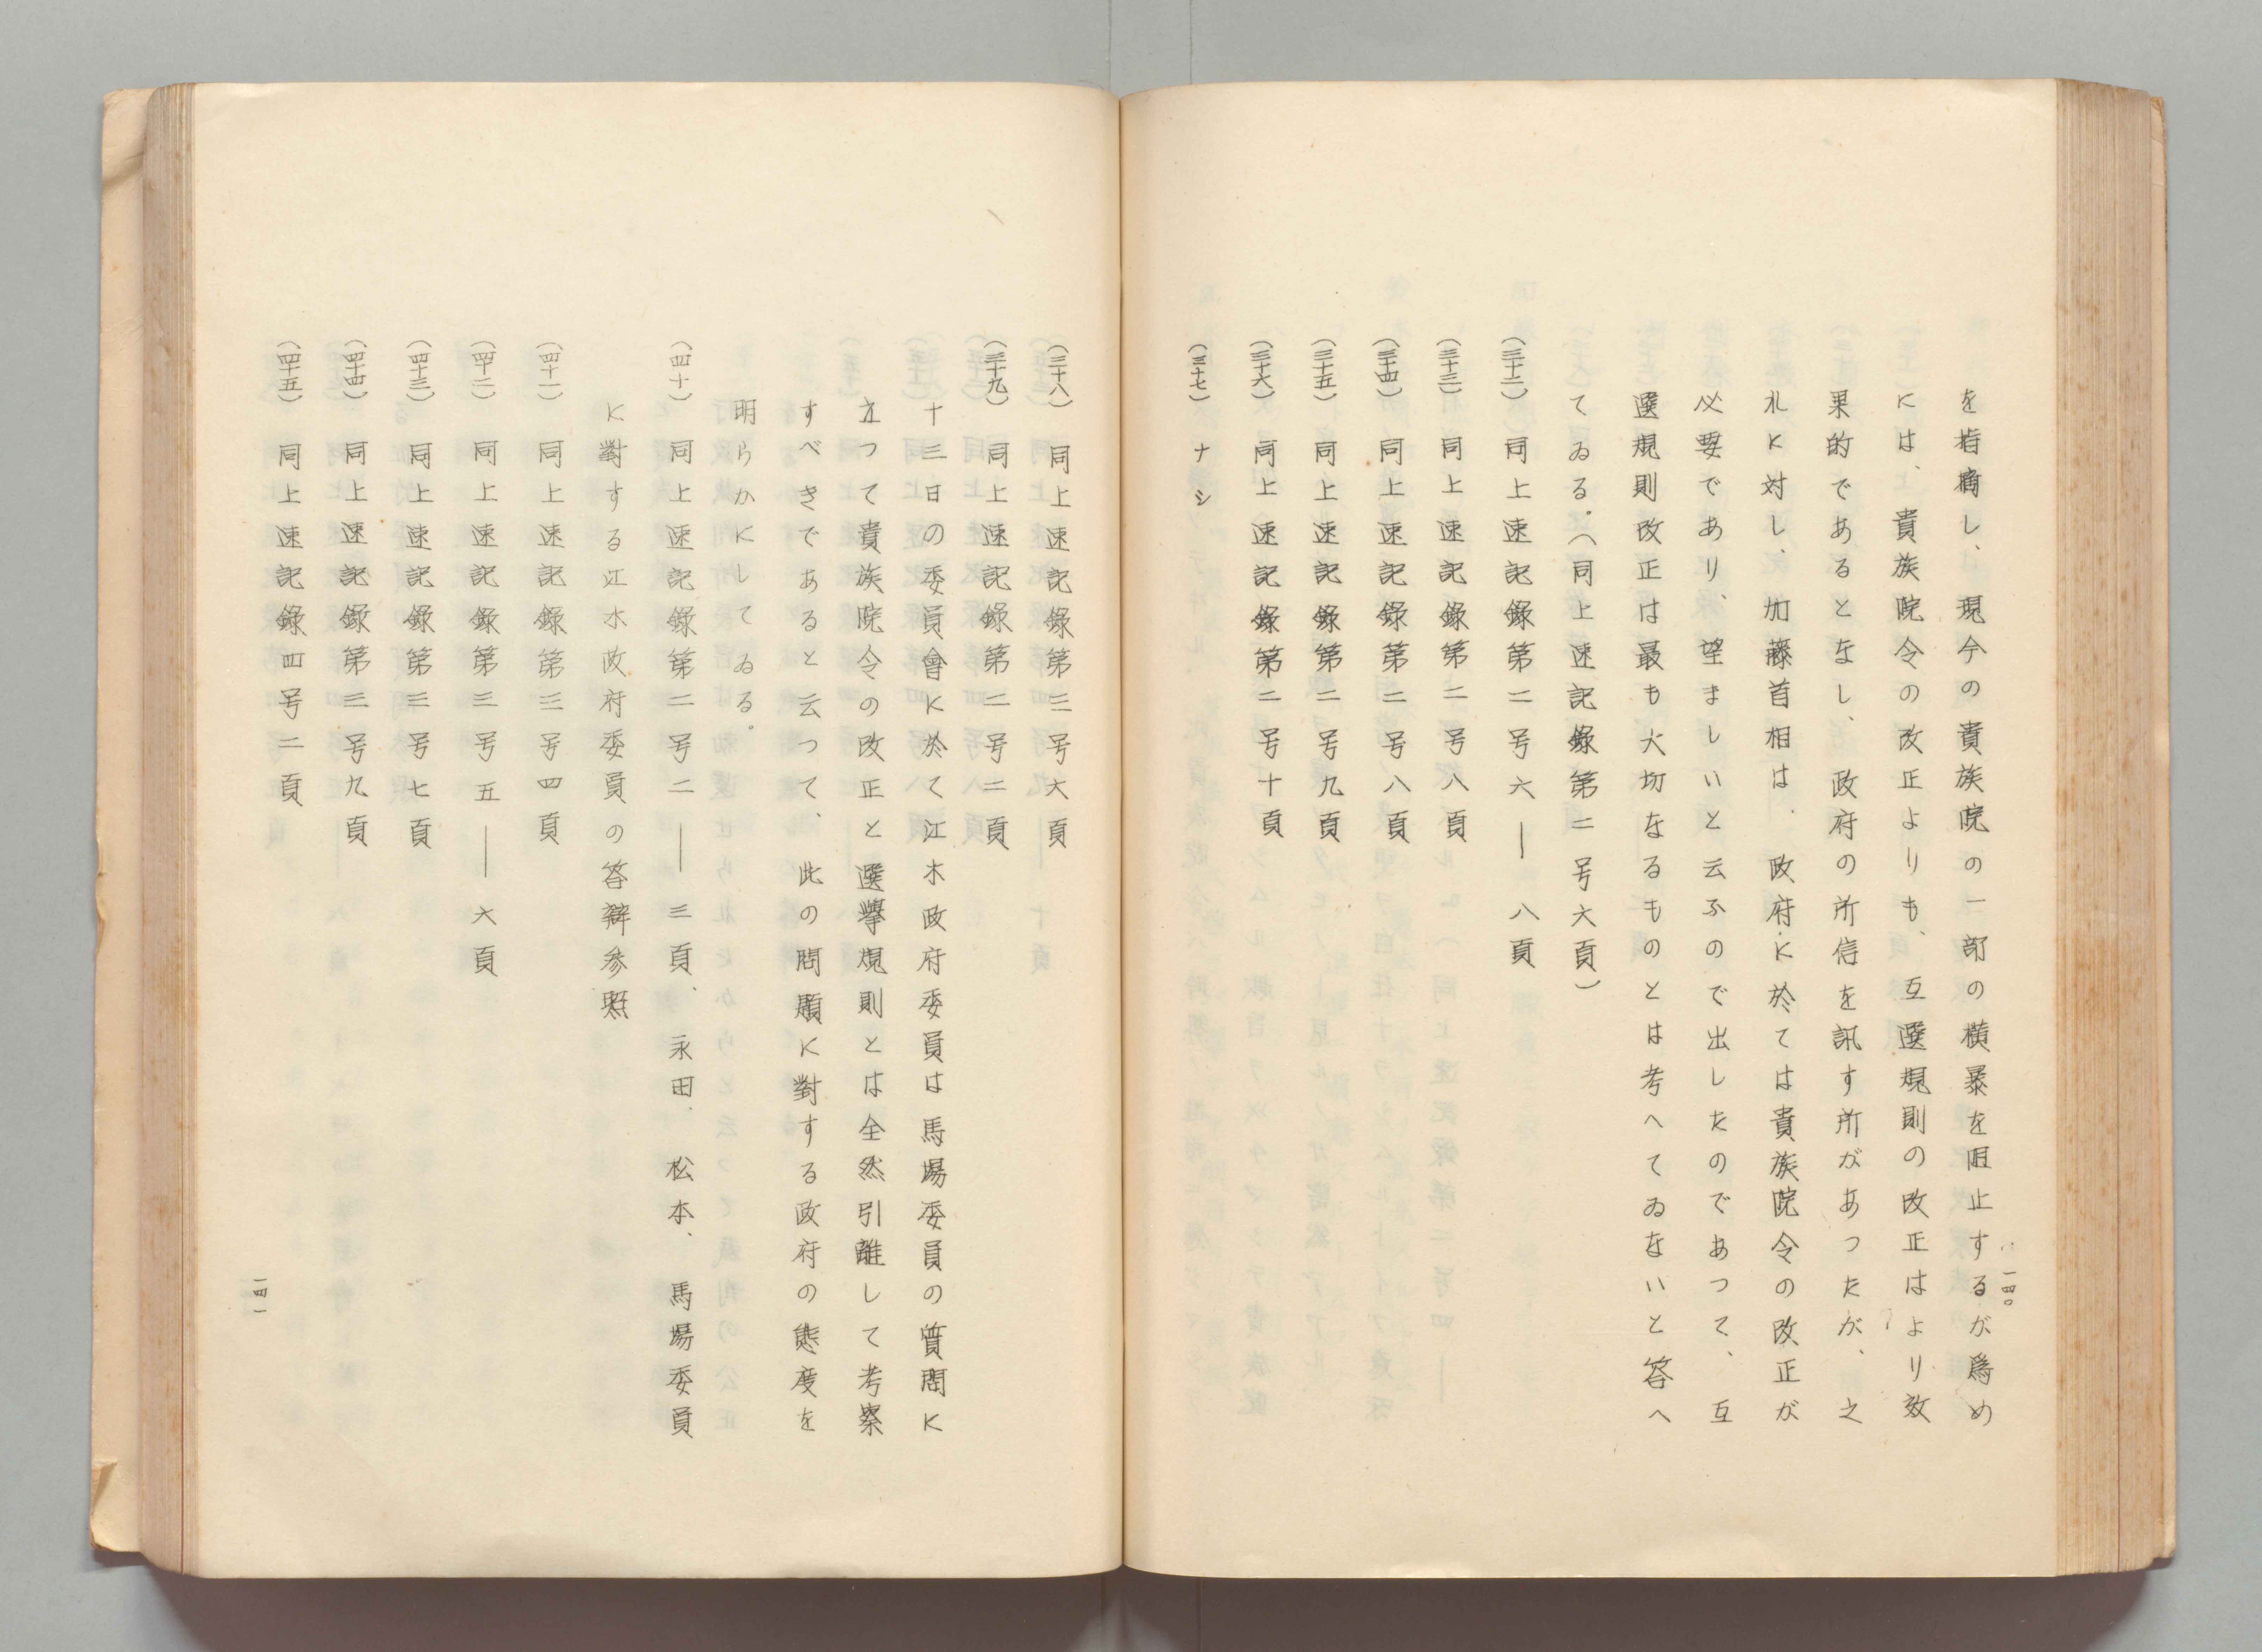 を指摘し、現今の貴族院の一部の横暴を阻止するが爲め
には、貴族院令の改正よりも、互選規則の改正はより效
果的であるとなし、政府の所信を訊す所があつたが、之
れに対し、加藤首相は、政府に於ては貴族院令の改正が
必要であり、望ましいと云ふので出したのであつて、互
選規則改正は最も大切なるものとは考へてゐないと答へ
てゐる。(同上速記錄第二号六頁)
(三十二) 同上速記錄第二号六——八頁
(三十三) 同上速記錄第二号八頁
(三十四) 同上速記錄第二号八頁
(三十五) 同上速記錄第二号九頁
(三十六) 同上速記錄第二号十頁
(三十七) ナシ
一四〇
(三十八) 同上速記錄第三号六頁
(三十九) 同上速記錄第二号二頁
十三日の委員會に於て江木政府委員は馬場委員の質問に
立つて貴族院令の改正と選擧規則とは全然引離して考察
すべきであると云つて、此の問題に對する政府の態度を
明らかにしてゐる。
(四十) 同上速記錄第二号二——三頁、永田、松本、馬場委員
に對する江木政府委員の答辯参照
(四十一) 同上速記錄第三号四頁
(四十二) 同上速記錄第三号五——六頁
(四十三) 同上速記錄第三号七頁
(四十四) 同上速記錄第三号九頁
(四十五) 同上速記錄四号二頁
一四一